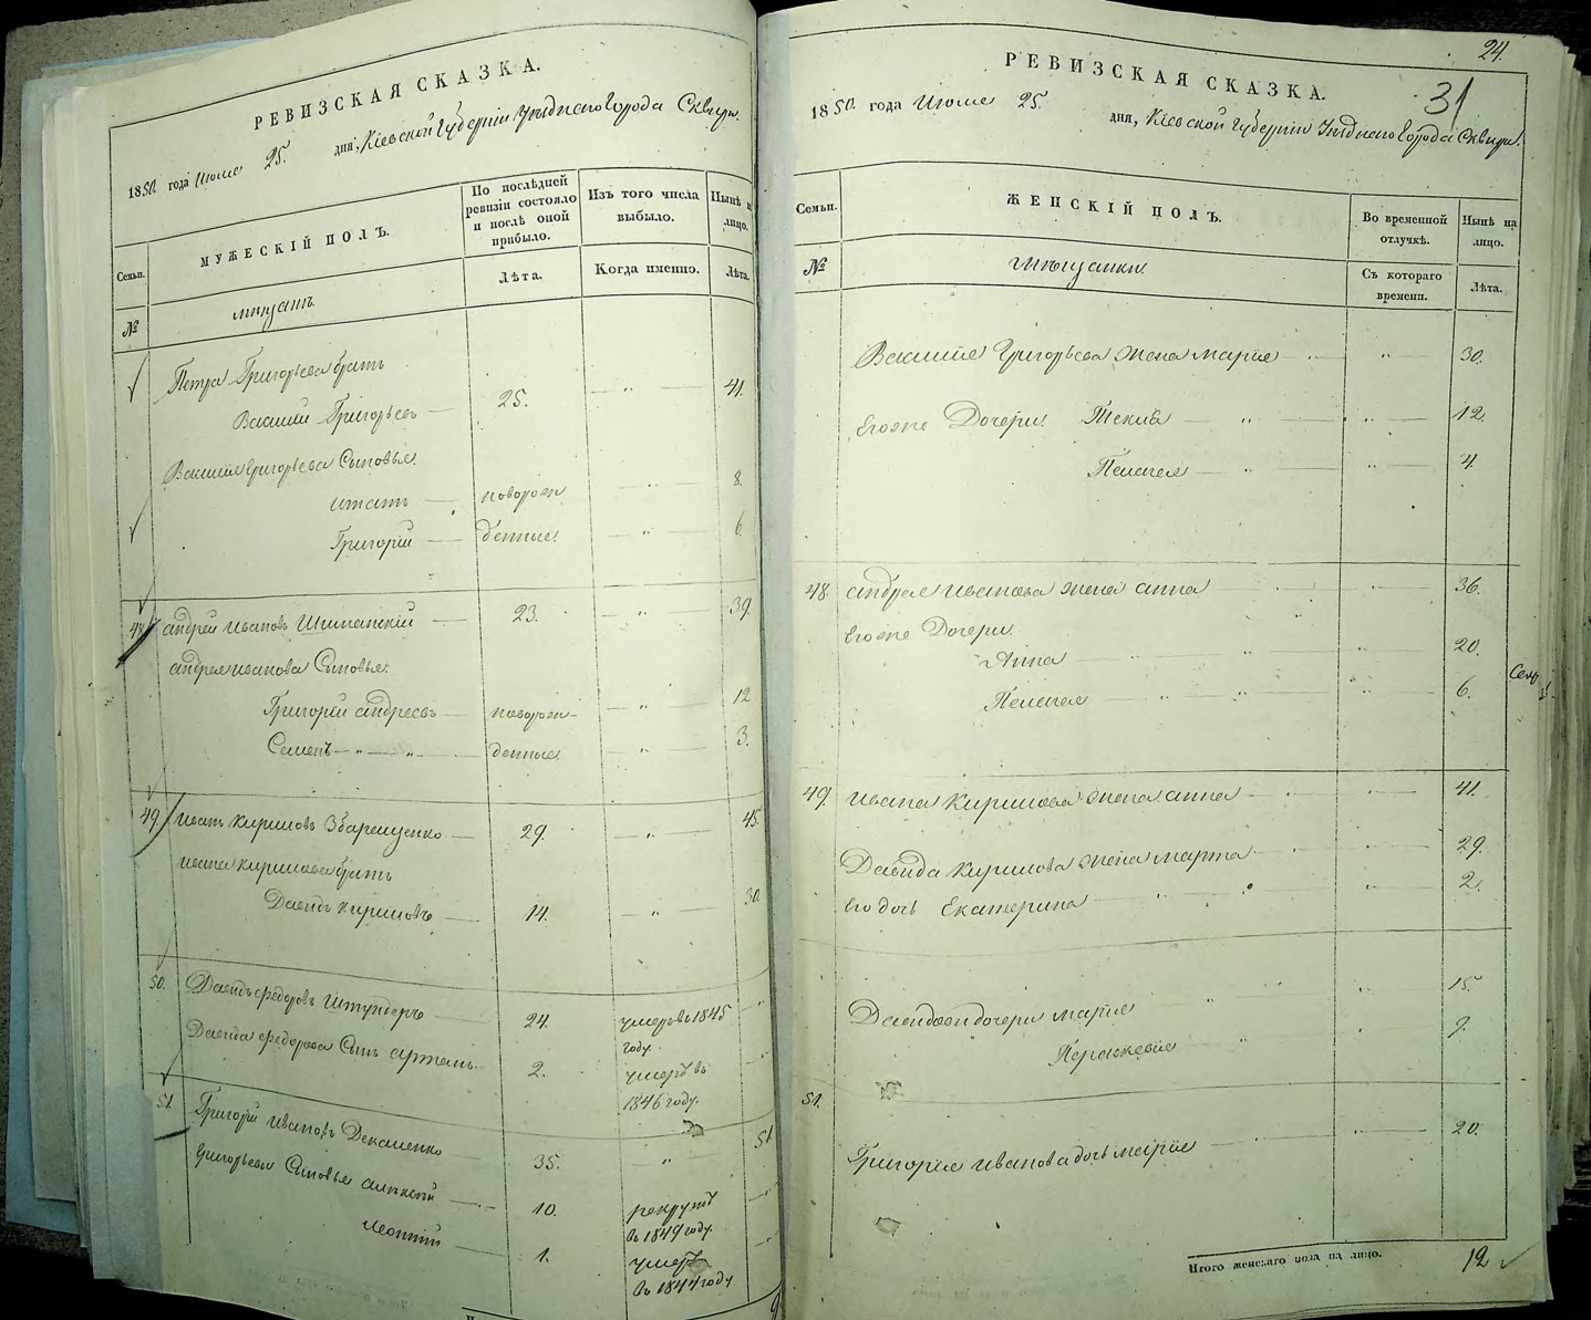 РЕВИЗСКАЯ СКАЗКА.
1850. года Июня 25. дня, Кіевской Губерніи Уѣзднаго Города Сквиры.
Семьи.
МУЖЕСКІЙ ПОЛЪ.
По послѣдней ревизіи состояло и послѣ оной прибыло.
Изъ того числа выбыло.
Нынѣ на лицо.
№
мѣщанъ
Лѣта.
Когда именно.
Лѣта.
Петра Григорьева братъ
Василій Григорьевъ — 25. — " — 41.
Василія Григорьева Сыновья.
Игнатъ — новорож — " — 8.
Григорій — денные. — " — 6.
48 Андрей Ивановъ — 23. — " — 39.
Андрея Иванова Сыновья:
Григорій Андреевъ — новорож- — " — 12
Семенъ — " — " — денные. — " — 3.
49 Иванъ Кириловъ Збаращенко — 29. — " — 45.
Ивана Кирилова братъ
Давидъ Кириловъ — 14. — " — 30.
50. Давидъ Федоровъ Штундеръ — 24. умеръ въ 1845 году. — "
Давида Федорова Сынъ Артемъ. 2. умеръ въ 1846 году. — "
51. Григорій Ивановъ Декаленко 35. — " — 51
Григорьевы Сыновья Алексей — 10. рекрутъ в 1849 году. — "
Леонтій — 1. умеръ в 1844 году — "
24.
РЕВИЗСКАЯ СКАЗКА.
31
1850. года Июня 25. дня, Кіевской Губерніи Уѣзднаго Города Сквиры.
Семьи.
ЖЕНСКІЙ ПОЛЪ.
Во временной отлучкѣ.
Нынѣ на лицо.
№
Мѣщанки.
Съ котораго времени.
Лѣта.
Василія Григорьева жена Марія — " — 30.
Его же Дочери. Текля — " — " — 12
Пелагея — " — " — 4.
48 Андрея Иванова жена Анна — " — 36.
Его же Дочери.
Анна — " — " — " 20.
Пелагея " — " — " 6.
49. Ивана Кирилова жена Анна — " — 41.
Давида Кирилова жена Марта — " — 29.
Его дочь Екатерина — " — " 2.
Давидовы дочери Марія — " — " 15.
Параскевія — " 9.
51.
Григорія Иванова дочь Марія — " — 20.
Итого женскаго пола на лицо. 12